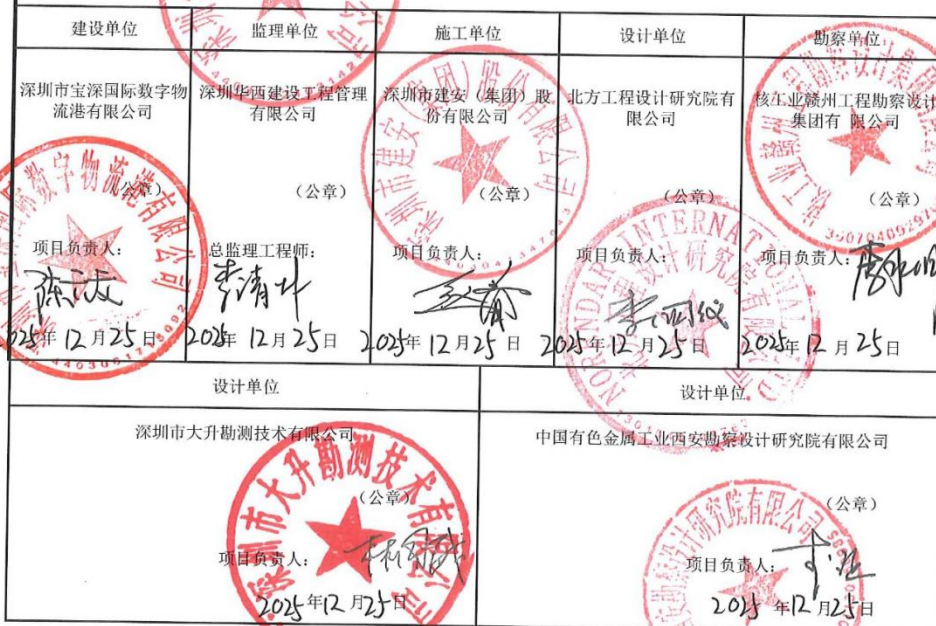 建设单位
监理单位
施工单位
设计单位
勘察单位
深圳市宝深国际数字物
流港有限公司
深圳华西建设工程管理
有限公司
深圳市建安（集团）股
份有限公司
北方工程设计研究院有
限公司
核工业赣州工程勘察设计
集团有 限公司
（公章）
（公章）
（公章）
（公章）
（公章）
项目负责人：
总监理工程师：
项目负责人：
项目负责人：
项目负责人：
2025年 12月 25日
2025年 12月 25日
2025年 12月 25日
2025年 12月 25日
2025年 12月 25日
设计单位
设计单位
深圳市大升勘测技术有限公司
中国有色金属工业西安勘察设计研究院有限公司
（公章）
（公章）
项目负责人：
项目负责人：
2025年12月25日
2025年12月25日
数字物流港有限公司
深圳市建安（集团）股份有限公司
NORINDAR INTERNATIONAL
深圳市大升勘测技术有限公司
勘察设计研究院有限公司